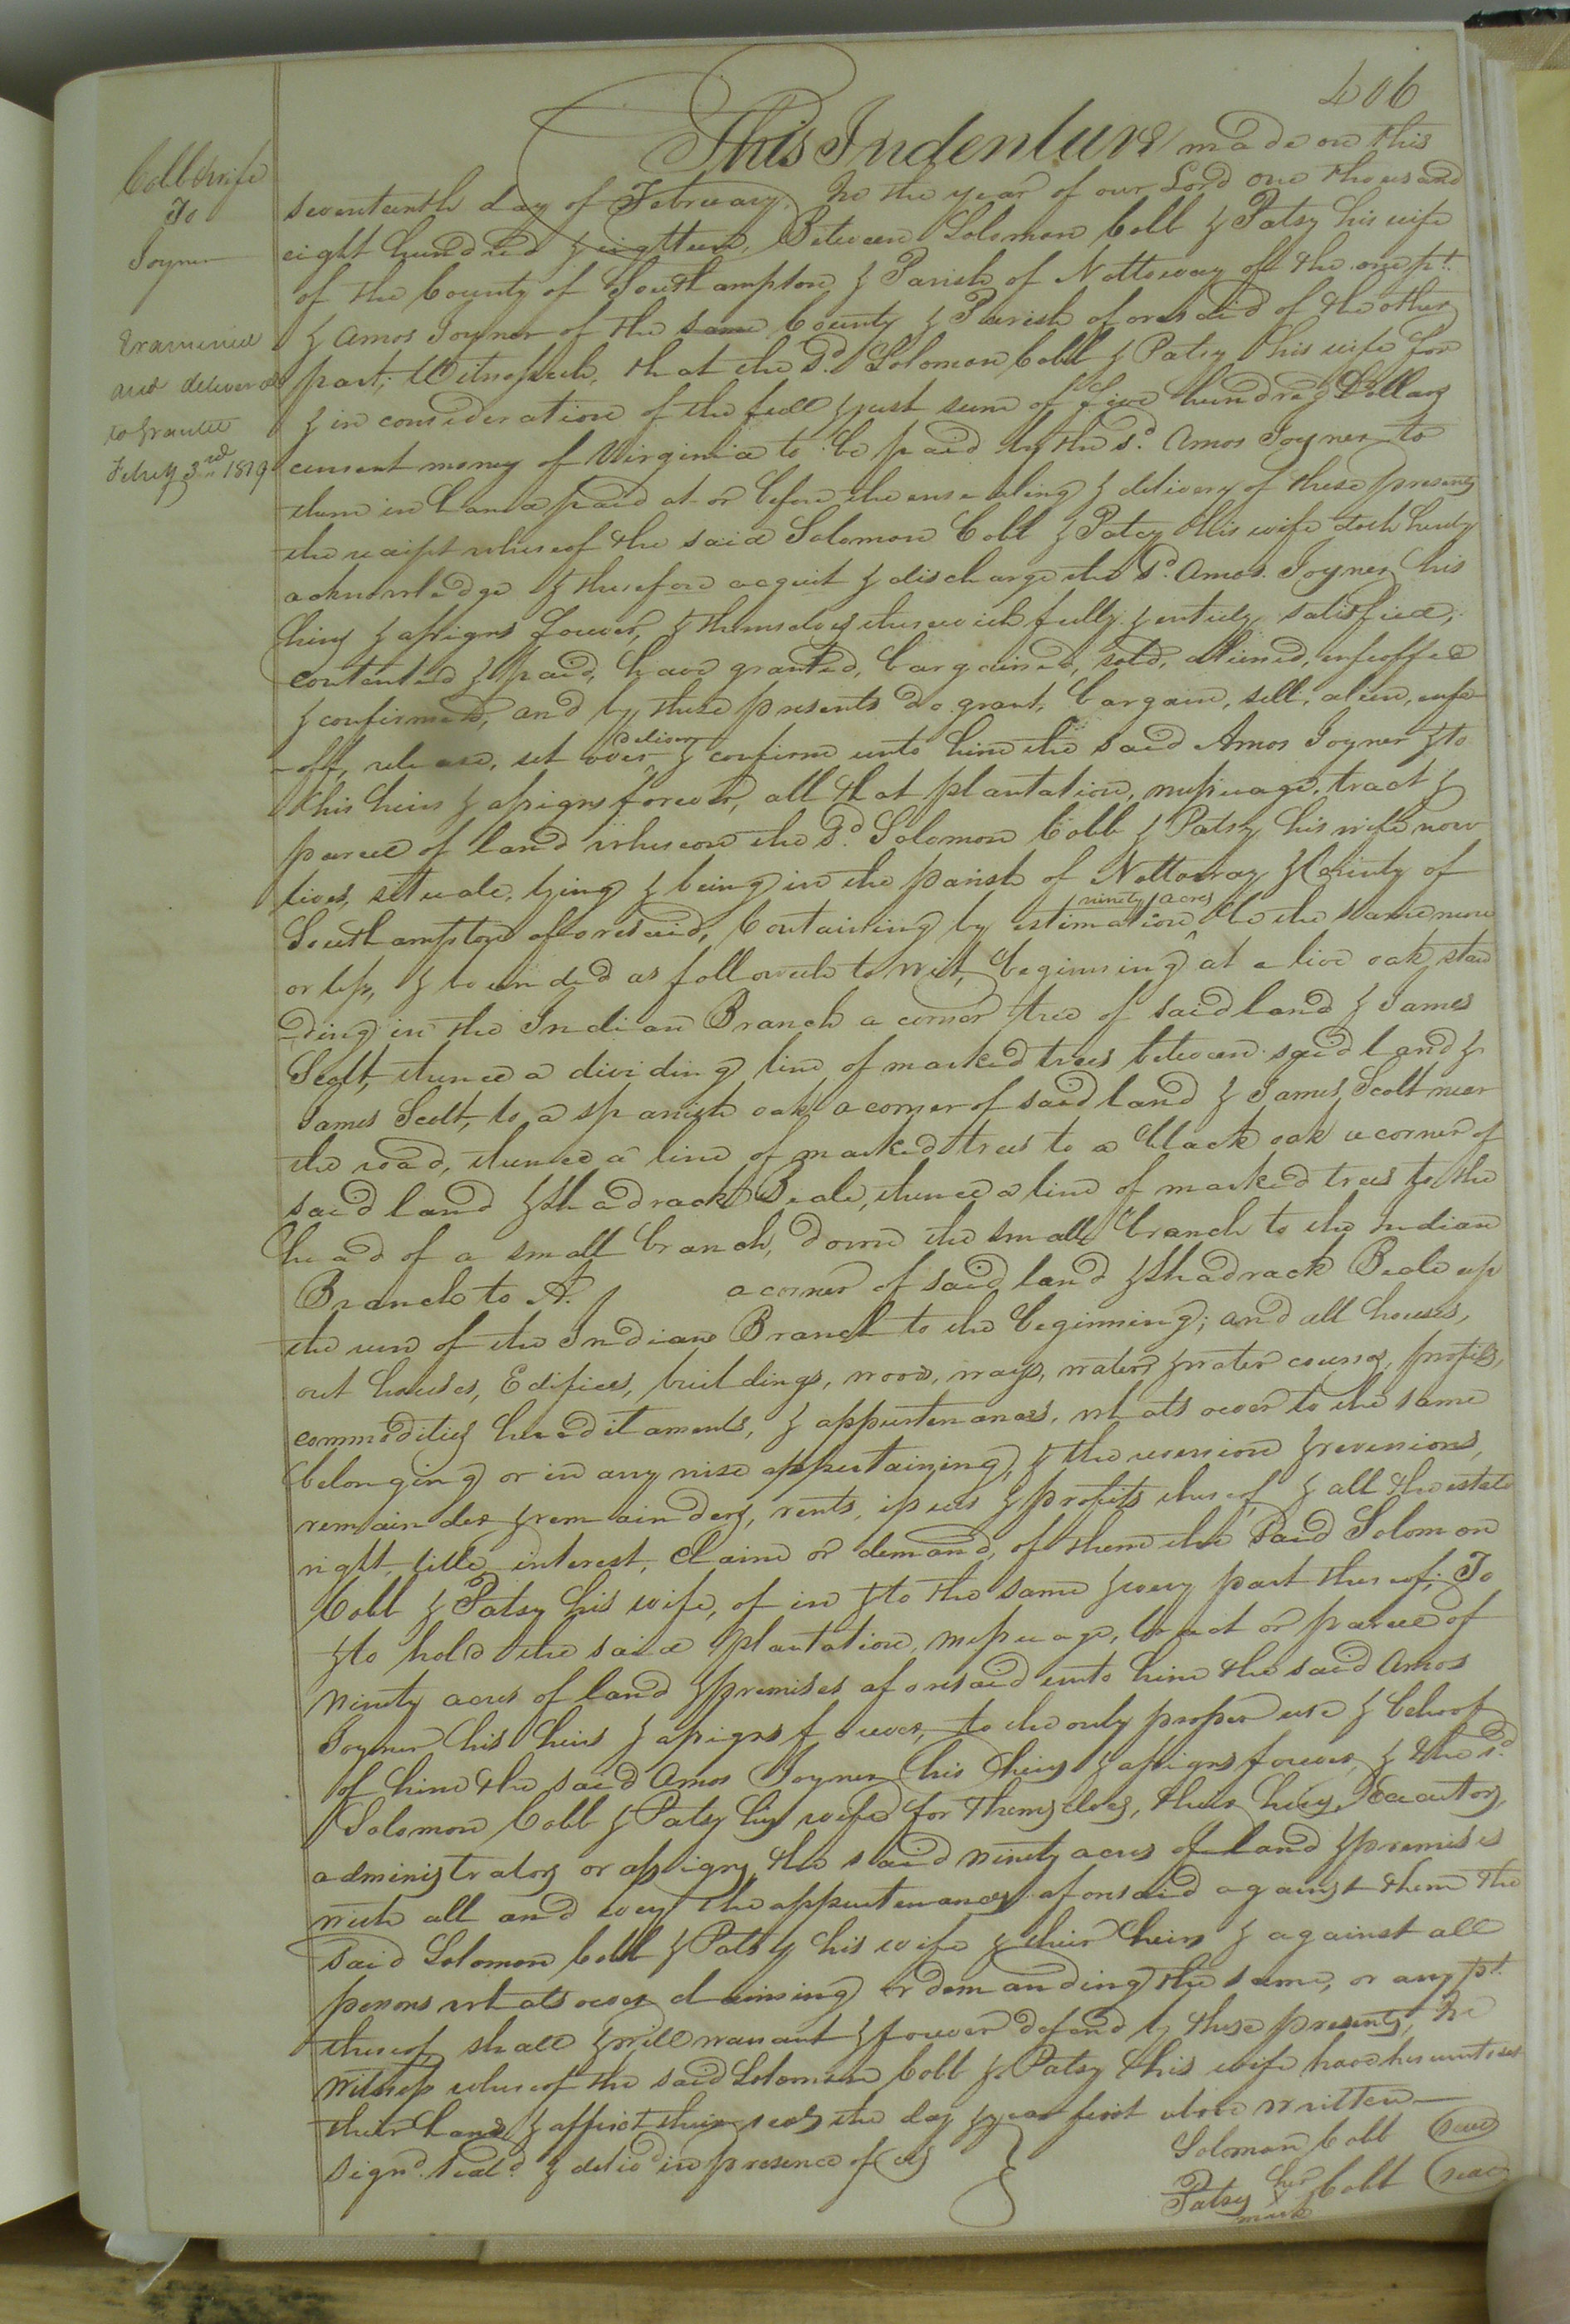 406
Cobb & wife
To
Joyner
Examined
and delivered
to Grantee
Feb'y 3rd 1819
This Indenture made on this
seventeenth day of February In the year of our Lord one thousand
eight hundred & eighteen, Between Solomon Cobb & Patsy his wife
of the County of Southampton & Parish of Nottoway of the one pt.
& Amos Joyner of the same County & Parish aforesaid of the other
part; Witnesseth, that the Sd. Solomon Cobb & Patsy his wife for
& in consideration of the full & just sum of five hundred Dollars
current money of Virginia to be paid by the sd. Amos Joyner to
them in hand paid at or before the ensealing & delivery of these presents
the receipt whereof the said Solomon Cobb & Patsy his wife doth hereby
acknowledge & therefore acquit & discharge the Sd. Amos Joyner his
heirs & assigns forever, & themselves therewith fully & entirely satisfied,
contented & paid, have granted, bargained, sold, aliened, enfeoffed
& confirmed, and by these presents do grant, bargain, sell, alien, enfe-
-off, release, set over deliver & confirm unto him the said Amos Joyner & to
his heirs & assigns forever, all that plantation, messuage, tract &
parcel of land whereon the Sd. Solomon Cobb & Patsy his wife now
lives, situate, lying & being in the parish of Nottoway & County of
Southampton aforesaid, Containing by estimation ninety acres be the same more
or less, & bounded as followeth to wit, beginning at a live oak stan
ding in the Indian Branch a corner tree of said land & James
Scott, thence a dividing line of marked trees between said land &
James Scott, to a spanish oak a corner of said land & James Scott near
the road, thence a line of marked trees to a black oak a corner of
said land & Shadrack Beale, thence a line of marked trees to the
head of a small branch, down the small branch to the Indian
Branch to A. a corner of said land & Shadrack Beale up
the run of the Indian Branch to the beginning; and all houses,
out houses, Edifices, buildings, woods, ways, waters & water courses, profits,
commodities hereditaments, & appurtenances, whatsoever to the same
belonging or in any wise appertaining, & the reversion & reversions,
remainder & remainders, rents, issues & profits thereof, & all the estate
right, title, interest, claim or demand, of them the said Solomon
Cobb & Patsy his wife, of in & to the same & every part thereof; To
& to hold the said plantation, messuage, tract or parcel of
ninety acres of land & premises aforesaid unto him the said Amos
Joyner his heirs & assigns forever, to the only proper use & behoof
of him the said Amos Joyner his heirs & assigns forever, & the sd.
Solomon Cobb & Patsy his wife for themselves, their heirs, Executors,
administrators or assigns, the said ninety acres of land & premises
with all and every the appurtenances aforesaid against them the
said Solomon Cobb & Patsy his wife & their heirs & against all
persons whatsoever claiming or demanding the same, or any pt.
thereof shall & will warrant & forever defend by these presents, In
witness whereof the said Solomon Cobb & Patsy his wife have hereunto set
their hands & affixt their seals the day & year first above written—
Signd. Seald. & delivd. in presence of us
Solomon Cobb seal
Patsy her X mark Cobb seal